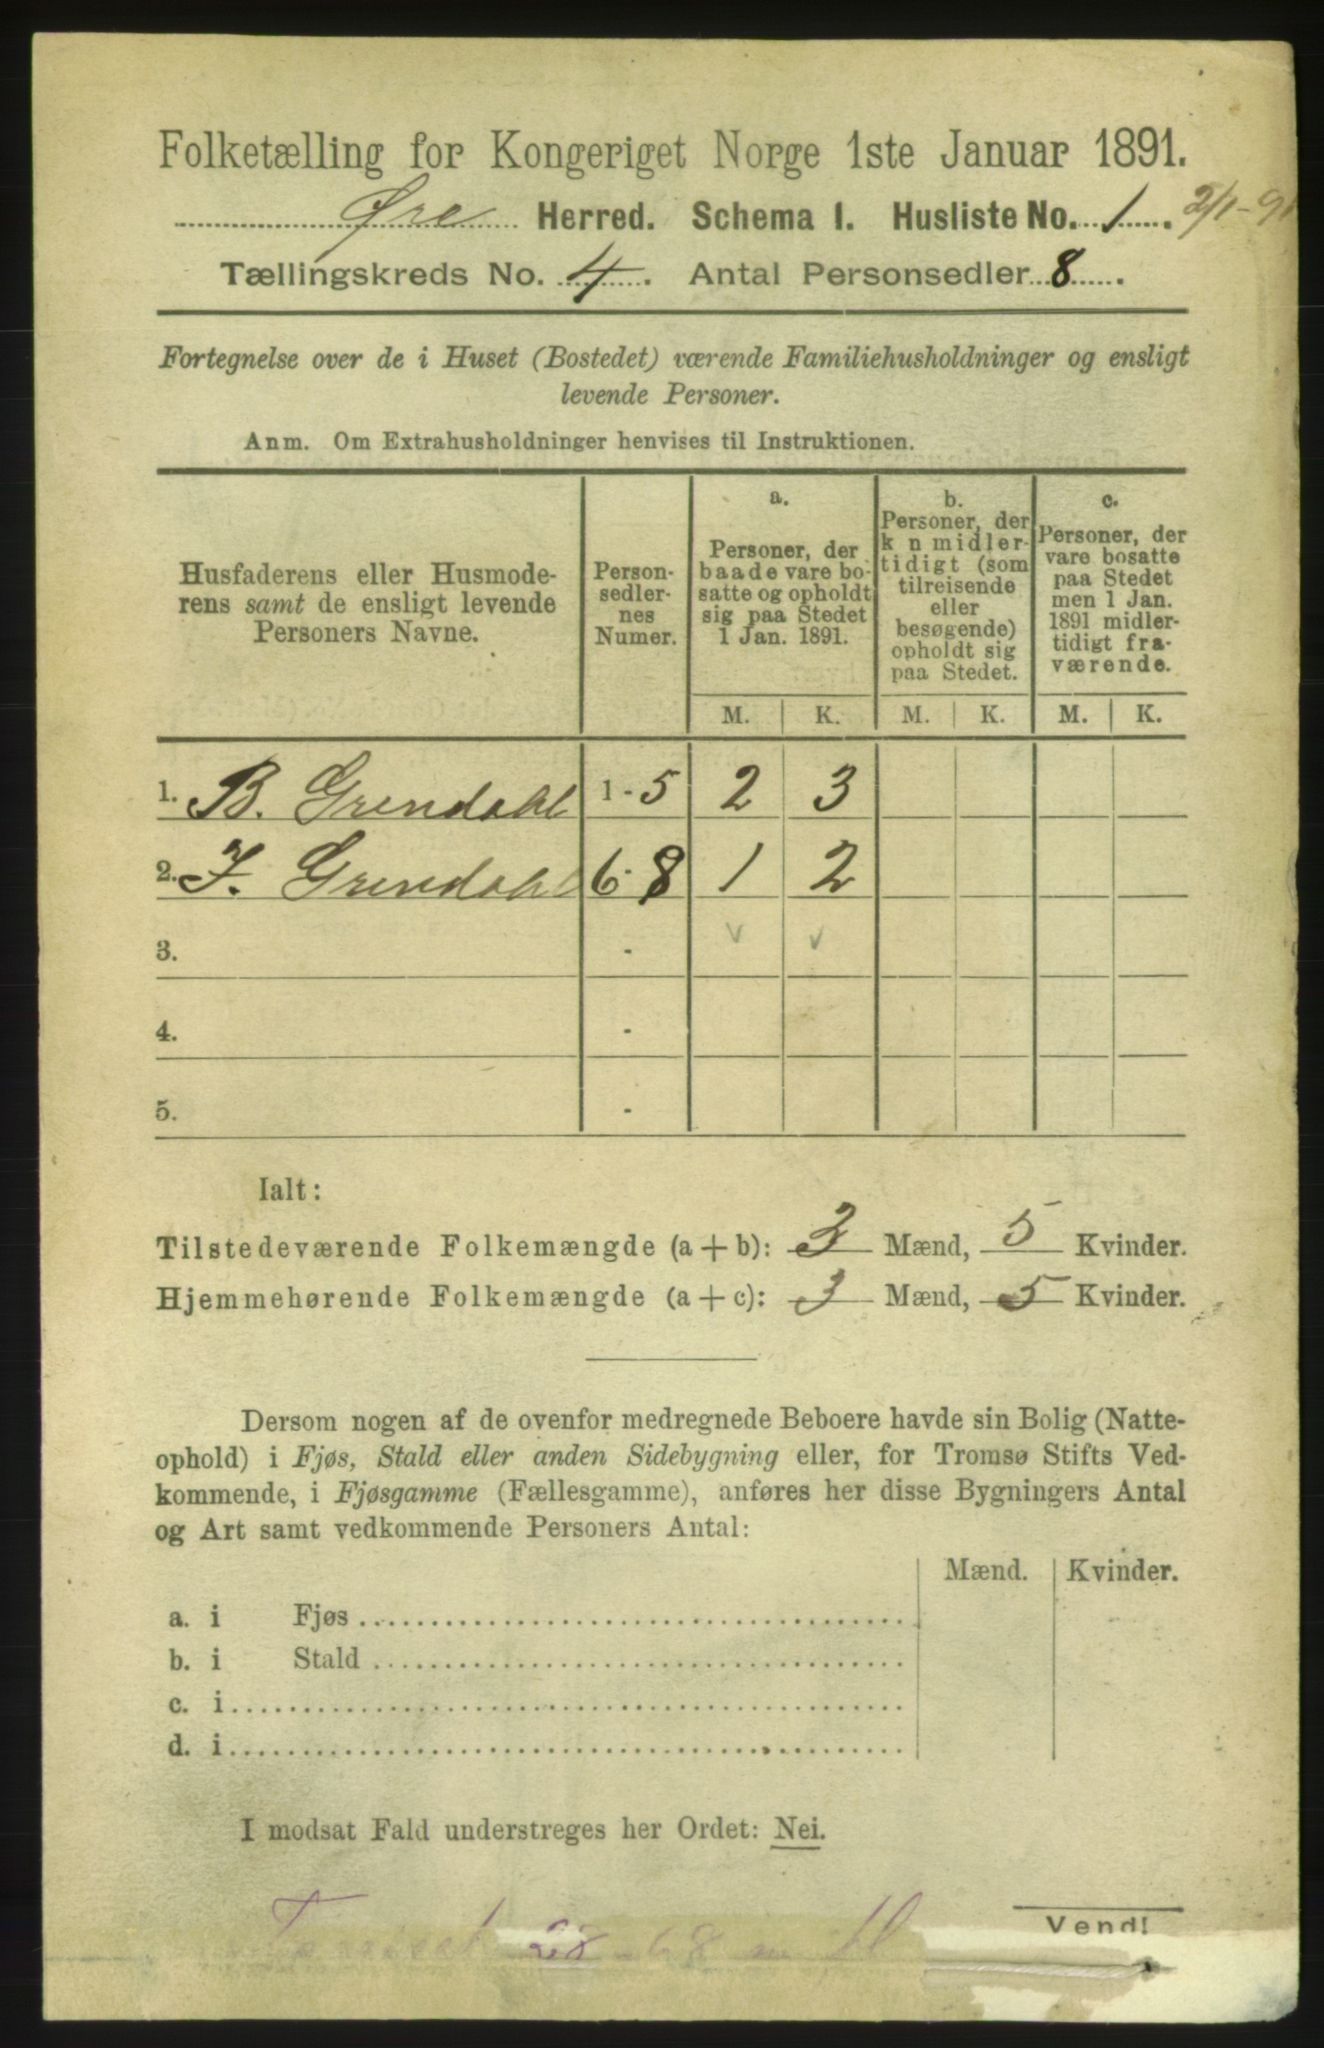 Folketælling for Kongeriget Norge 1ste Januar 1891.
Øre Herred. Schema 1. Husliste No. 1. 2/1-91
Tællingskreds No. 4. Antal Personsedler 8.
Fortegnelse over de i Huset (Bostedet) værende Familiehusholdninger og ensligt
levende Personer.
Anm. Om Extrahusholdninger henvises til Instruktionen.
Husfaderens eller Husmode-
rens samt de ensligt levende
Personers Navne.
Person-
sedler-
nes
Numer.
a.
Personer, der
baade vare bo-
satte og opholdt
sig paa Stedet
1 Jan. 1891.
b.
Personer, der
k n midler-
tidigt (som
tilreisende
eller
besøgende)
opholdt sig
paa Stedet.
c.
Personer, der
vare bosatte
paa Stedet
men 1 Jan.
1891 midler-
tidigt fra-
værende.
M. K. M. K. M. K.
1. B. Grendahl 1-5 2 3
2. J. Grendahl 6-8 1 2
3. - v v
4. -
5. -
Ialt:
Tilstedeværende Folkemængde (a + b): 3 Mænd, 5 Kvinder.
Hjemmehørende Folkemængde (a + c): 3 Mænd, 5 Kvinder.
Dersom nogen af de ovenfor medregnede Beboere havde sin Bolig (Natte-
ophold) i Fjøs, Stald eller anden Sidebygning eller, for Tromsø Stifts Ved-
kommende, i Fjøsgamme (Fællesgamme), anføres her disse Bygningers Antal
og Art samt vedkommende Personers Antal:
Mænd. Kvinder.
a. i Fjøs
b. i Stald
c. i
d. i
I modsat Fald understreges her Ordet: Nei.
Vend!
28-68